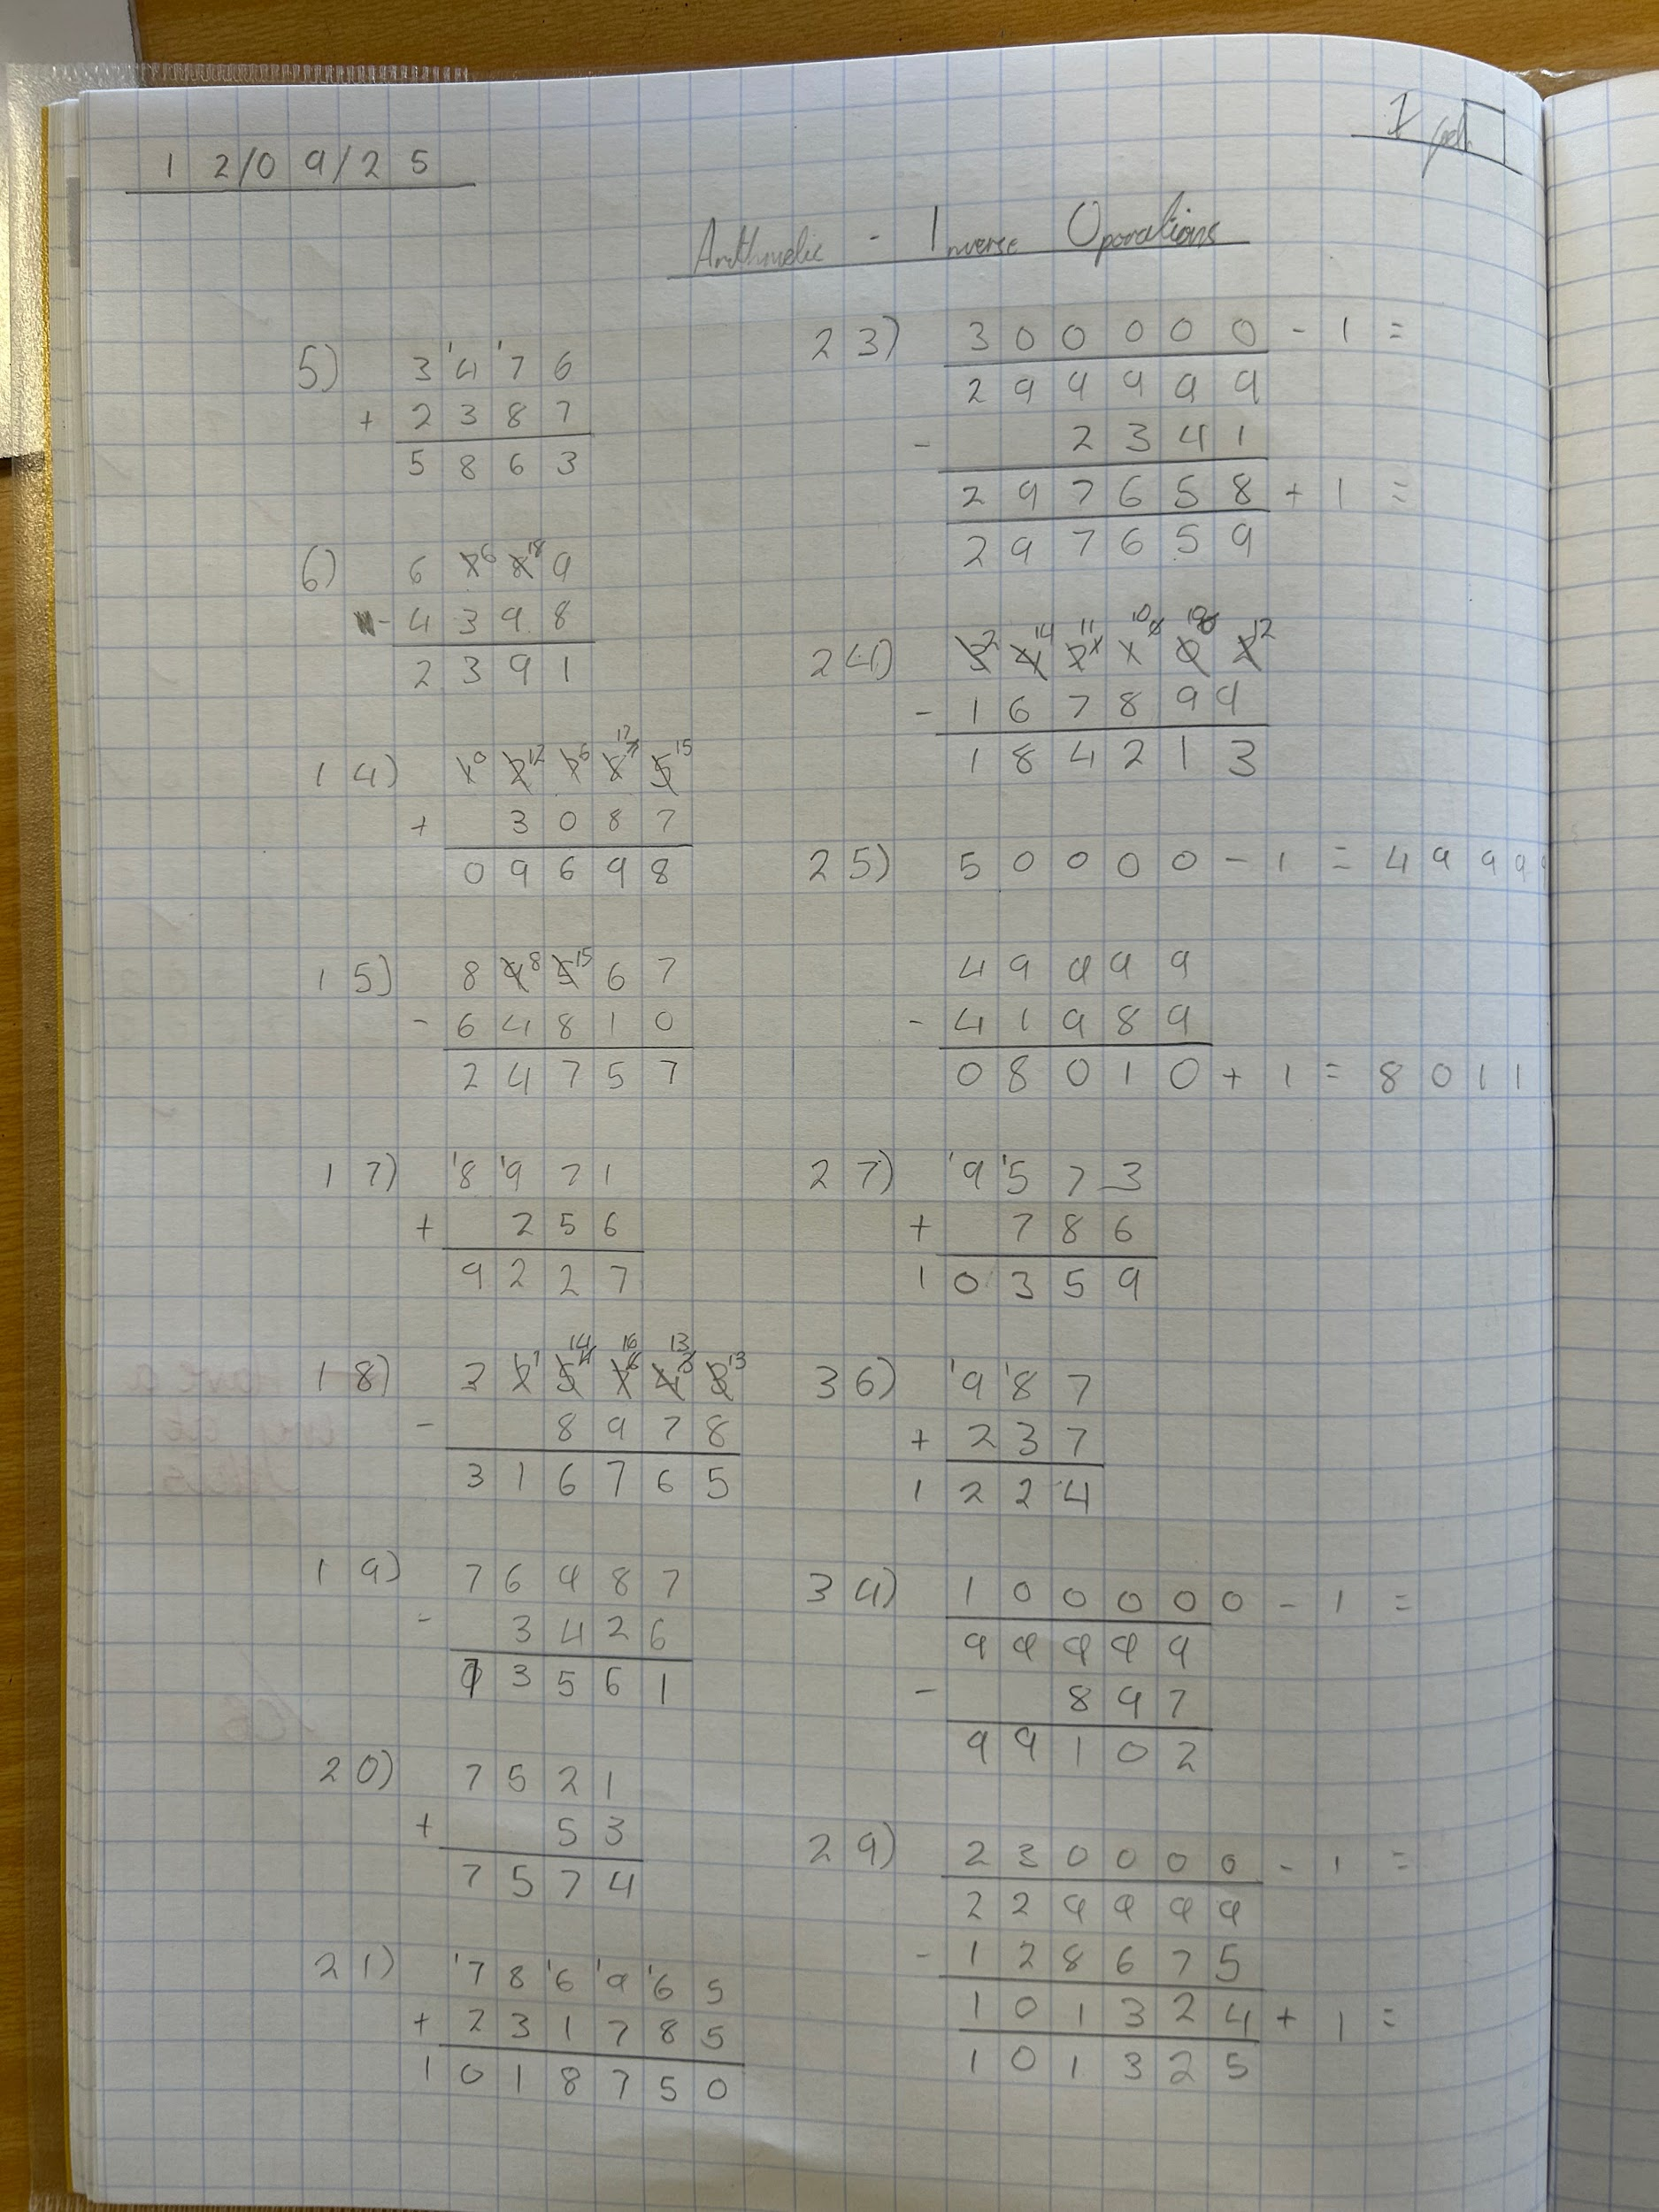 12/09/25
Arithmetic - Inverse Operations
5) 3 '4 '7 6
+ 2 3 8 7
5 8 6 3
6) 6 7 6 8 18 9
- 4 3 9 8
2 3 9 1
14) 1 0 2 12 7 6 8 7 17 5 15
+ 3 0 8 7
0 9 6 9 8
15) 8 9 8 5 15 6 7
- 6 4 8 1 0
2 4 7 5 7
17) '8 '9 7 1
+ 2 5 6
9 2 2 7
18) 3 2 1 5 4 14 7 6 16 4 3 13 3 13
- 8 9 7 8
3 1 6 7 6 5
19) 7 6 9 8 7
- 3 4 2 6
7 3 5 6 1
20) 7 5 2 1
+ 5 3
7 5 7 4
21) '7 8 '6 '9 '6 5
+ 2 3 1 7 8 5
1 0 1 8 7 5 0
23) 3 0 0 0 0 0 - 1 =
2 9 9 9 9 9
- 2 3 4 1
2 9 7 6 5 8 + 1 =
2 9 7 6 5 9
24)
- 1 6 7 8 9 9
1 8 4 2 1 3
25) 5 0 0 0 0 - 1 = 4 9 9 9
4 9 9 9 9
- 4 1 9 8 9
0 8 0 1 0 + 1 = 8 0 1 1
27) '9 '5 7 3
+ 7 8 6
1 0 3 5 9
36) '9 '8 7
+ 2 3 7
1 2 2 4
34) 1 0 0 0 0 0 - 1 =
9 9 9 9 9
- 8 9 7
9 9 1 0 2
29) 2 3 0 0 0 0 - 1 =
2 2 9 9 9 9
- 1 2 8 6 7 5
1 0 1 3 2 4 + 1 =
1 0 1 3 2 5